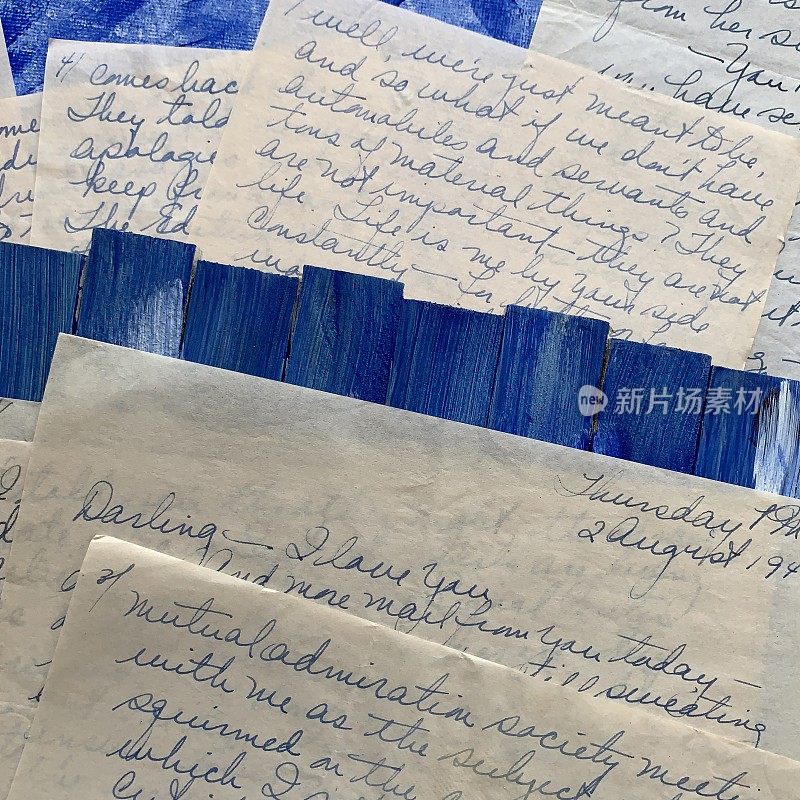 well, we're just meant to be,
and so what if we don't have
automobiles and servants and
tons of material things? They
are not important - they are not
life. Life is me by your side
constantly -
4/ comes bac
They told
apologie
keep
The Ed
from her se
- You
have se
new 新片场素材
Thursday PM
2 August 194
Darling - I love you
And more mail from you today -
still sweating
2/ mutual admiration society meeti
with me as the subject
squirmed on the
which I